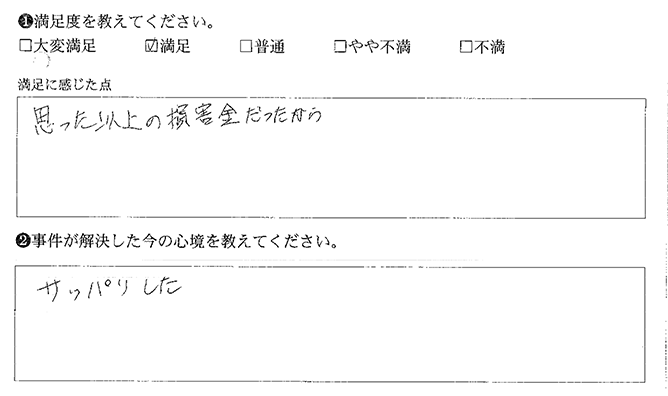 ❶満足度を教えてください。
□大変満足 ☑満足 □普通 □やや不満 □不満
満足に感じた点
思った以上の損害金だったから
❷事件が解決した今の心境を教えてください。
サッパリした